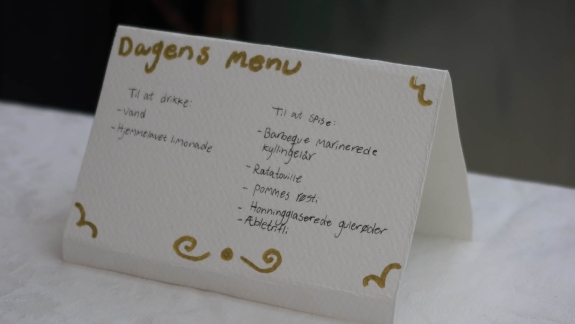 Dagens menu
Til at drikke:
- Vand
- Hjemmelavet limonade
Til at spise:
- Barbeque marinerede
kyllingelår
- Ratatouille
- Pommes røsti
- Honningglaserede gulerødder
- Æbletrifli